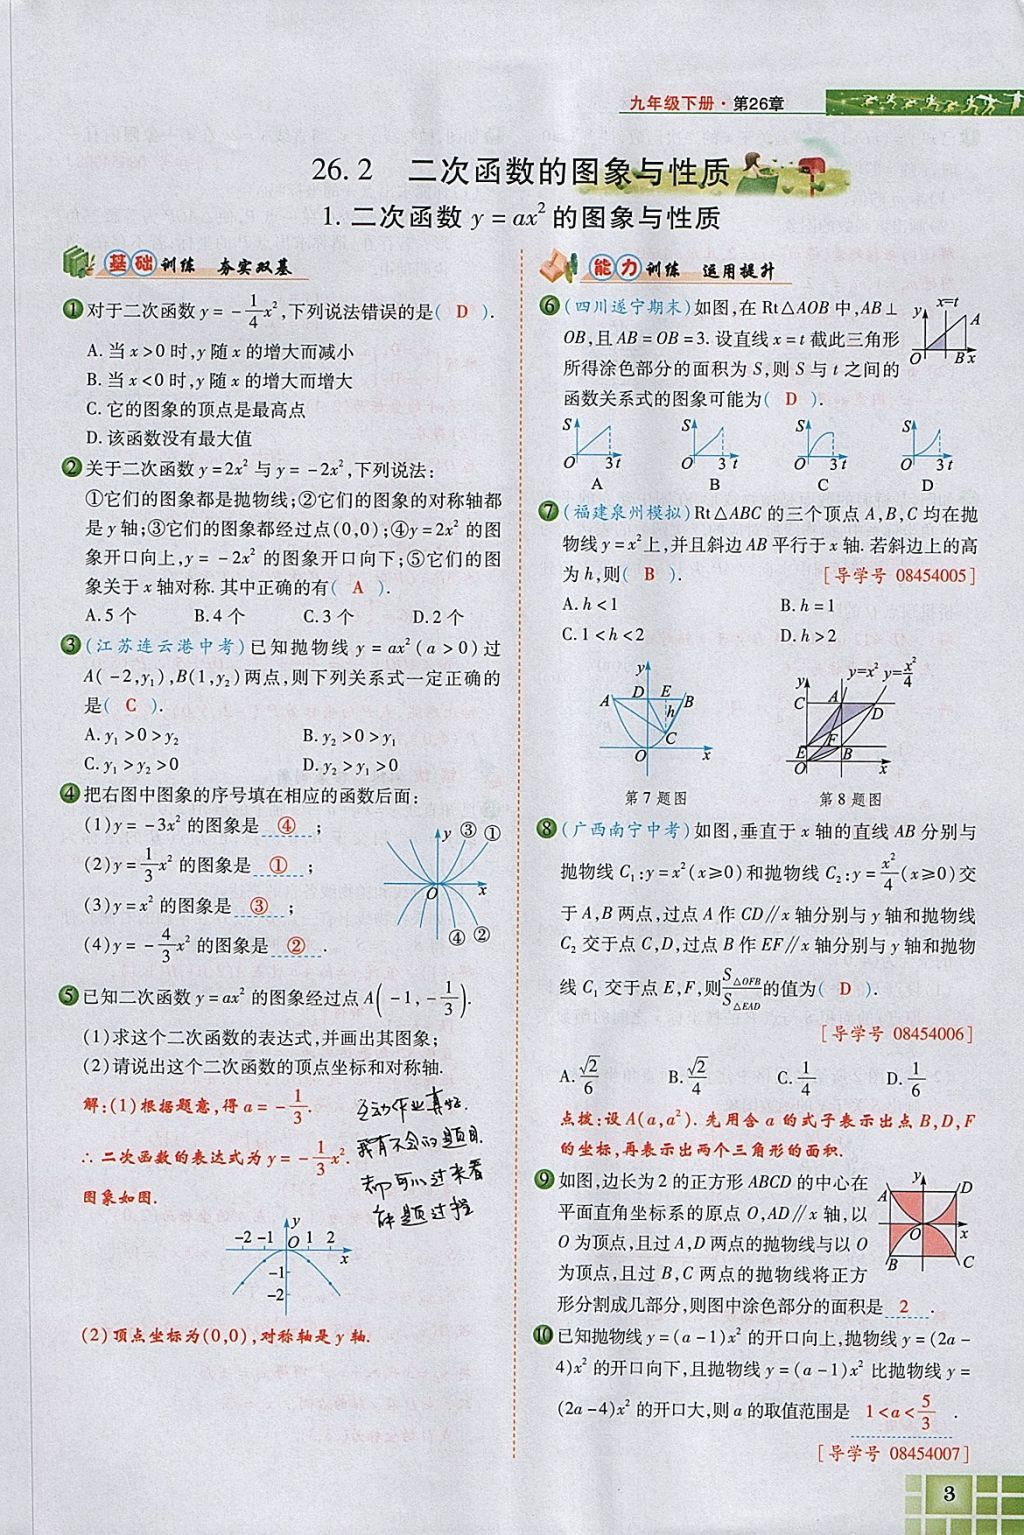 九年级下册·第26章
26.2 二次函数的图象与性质
1.二次函数 y=ax²的图象与性质
基础训练 夯实双基
1 对于二次函数 y=-1/4x²,下列说法错误的是( D ).
A.当 x>0 时,y 随 x 的增大而减小
B.当 x<0 时,y 随 x 的增大而增大
C.它的图象的顶点是最高点
D.该函数没有最大值
2 关于二次函数 y=2x² 与 y=-2x²,下列说法:
①它们的图象都是抛物线;②它们的图象的对称轴都
是 y 轴;③它们的图象都经过点(0,0);④y=2x² 的图
象开口向上,y=-2x² 的图象开口向下;⑤它们的图
象关于 x 轴对称.其中正确的有( A ).
A.5 个 B.4 个 C.3 个 D.2 个
3 (江苏连云港中考)已知抛物线 y=ax²(a>0)过
A(-2,y₁),B(1,y₂)两点,则下列关系式一定正确的
是( C ).
A.y₁>0>y₂ B.y₂>0>y₁
C.y₁>y₂>0 D.y₂>y₁>0
4 把右图中图象的序号填在相应的函数后面:
(1)y=-3x² 的图象是 ④ ;
(2)y=1/3x² 的图象是 ① ;
(3)y=x² 的图象是 ③ ;
(4)y=-4/3x² 的图象是 ② .
y ③ ①
O x
④ ②
5 已知二次函数 y=ax² 的图象经过点 A(-1,-1/3).
(1)求这个二次函数的表达式,并画出其图象;
(2)请说出这个二次函数的顶点坐标和对称轴.
解:(1)根据题意,得 a=-1/3.
∴二次函数的表达式为 y=-1/3x².
图象如图.
主动作业真好.
我有不会的题目.
都可以过来看
解题过程
y
-2 -1 O 1 2 x
-1
-2
(2)顶点坐标为(0,0),对称轴是 y 轴.
能力训练 运用提升
6 (四川遂宁期末)如图,在 Rt△AOB 中,AB⊥
OB,且 AB=OB=3.设直线 x=t 截此三角形
所得涂色部分的面积为 S,则 S 与 t 之间的
函数关系式的图象可能为( D ).
y x=t A
O B x
S S S S
O 3 t O 3 t O 3 t O 3 t
A B C D
7 (福建泉州模拟)Rt△ABC 的三个顶点 A,B,C 均在抛
物线 y=x²上,并且斜边 AB 平行于 x 轴.若斜边上的高
为 h,则( B ). [导学号 08454005]
A.h<1 B.h=1
C.1<h<2 D.h>2
y
A D E B
h
C
O x
第 7 题图
y y=x² y=x²/4
C A D
E F B
O x
第 8 题图
8 (广西南宁中考)如图,垂直于 x 轴的直线 AB 分别与
抛物线 C₁:y=x²(x≥0)和抛物线 C₂:y=x²/4(x≥0)交
于 A,B 两点,过点 A 作 CD∥x 轴分别与 y 轴和抛物线
C₂ 交于点 C,D,过点 B 作 EF∥x 轴分别与 y 轴和抛物
线 C₁ 交于点 E,F,则S△OFB/S△EAD的值为( D ).
[导学号 08454006]
A.√2/6 B.√2/4 C.1/4 D.1/6
点拨:设 A(a,a²).先用含 a 的式子表示出点 B,D,F
的坐标,再表示出两个三角形的面积.
9 如图,边长为 2 的正方形 ABCD 的中心在
平面直角坐标系的原点 O,AD∥x 轴,以
O 为顶点,且过 A,D 两点的抛物线与以 O
为顶点,且过 B,C 两点的抛物线将正方
形分割成几部分,则图中涂色部分的面积是 2 .
y
A D
O x
B C
10 已知抛物线 y=(a-1)x² 的开口向上,抛物线 y=(2a-
4)x² 的开口向下,且抛物线 y=(a-1)x² 比抛物线 y=
(2a-4)x² 的开口大,则 a 的取值范围是 1<a<5/3 .
[导学号 08454007]
3